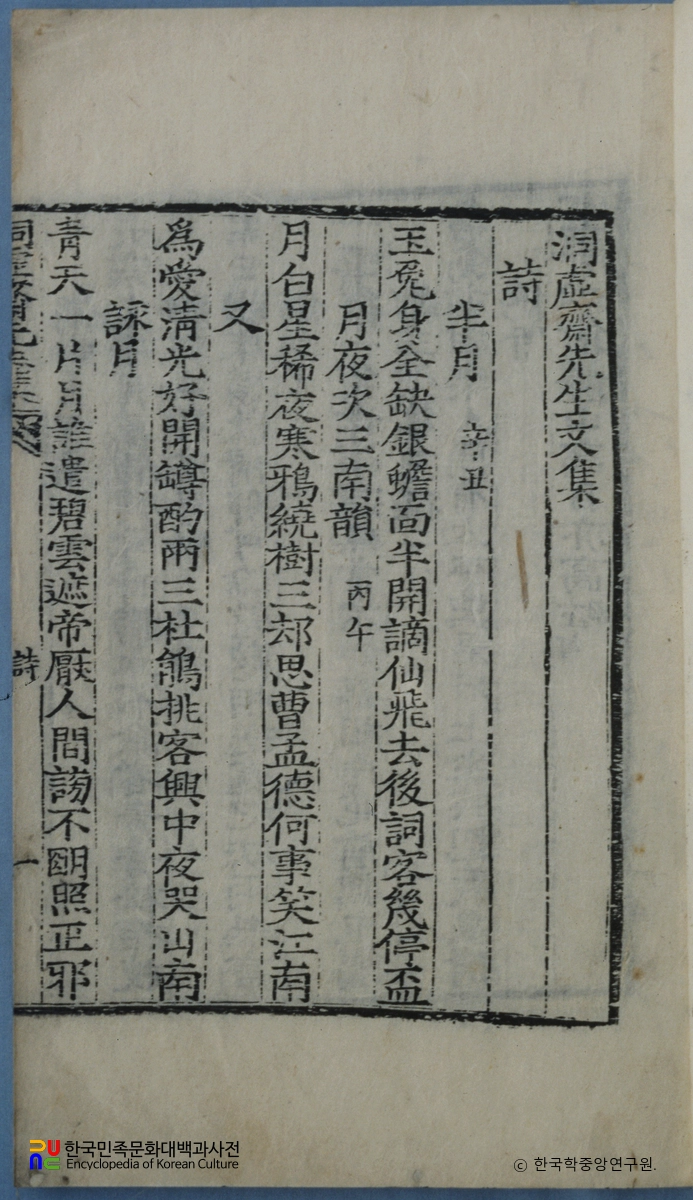 洞虛齋先生文集
詩
半月 辛丑
玉兔身全缺銀蟾面半開謫仙飛去後詞客幾停盃
月夜次三南韻 丙午
月白星稀夜寒鴉繞樹三却思曹孟德何事笑江南
又
爲愛淸光好開罇酌兩三杜鵑挑客興中夜哭山南
詠月
靑天一片月誰遣碧雲遮帝厭人間謗不明照正邪
詩 一
한국민족문화대백과사전
Encyclopedia of Korean Culture
ⓒ 한국학중앙연구원.